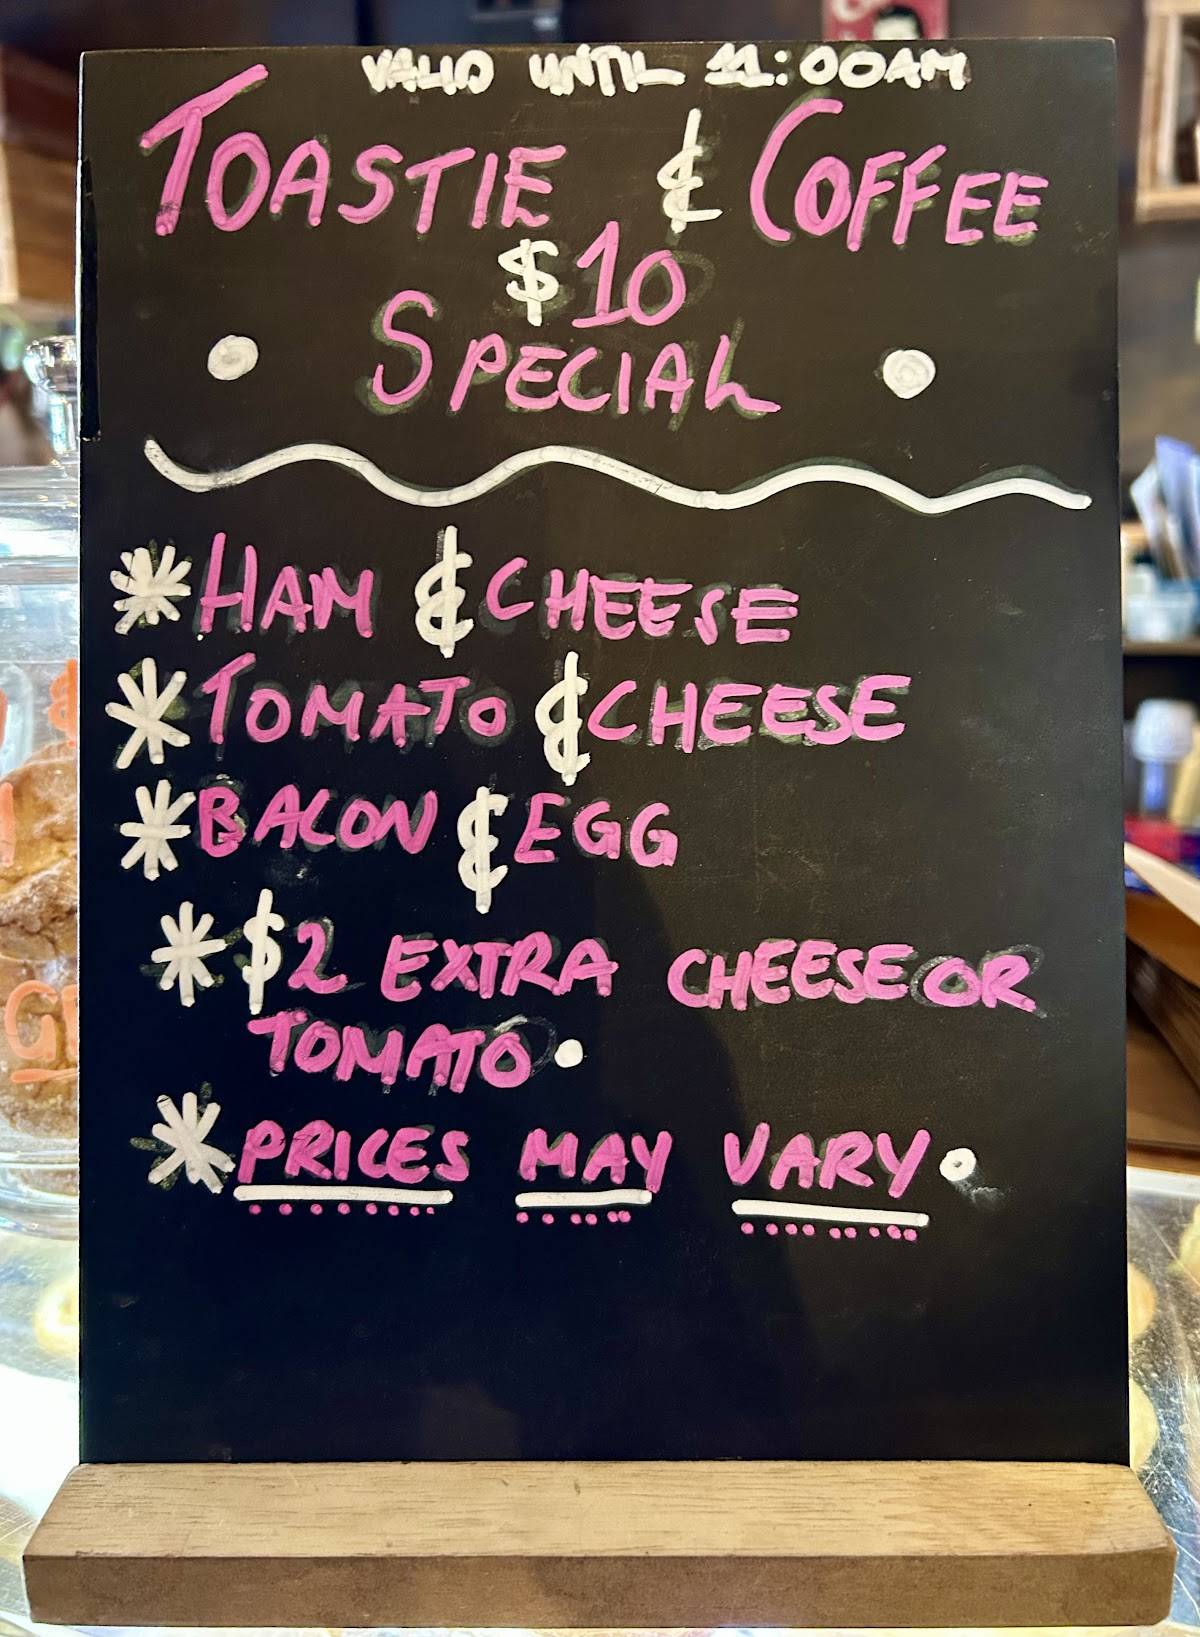 VALID UNTIL 11:00AM
TOASTIE & COFFEE
$10
SPECIAL
HAM & CHEESE
TOMATO & CHEESE
BACON & EGG
$2 EXTRA CHEESE OR
TOMATO.
PRICES MAY VARY.